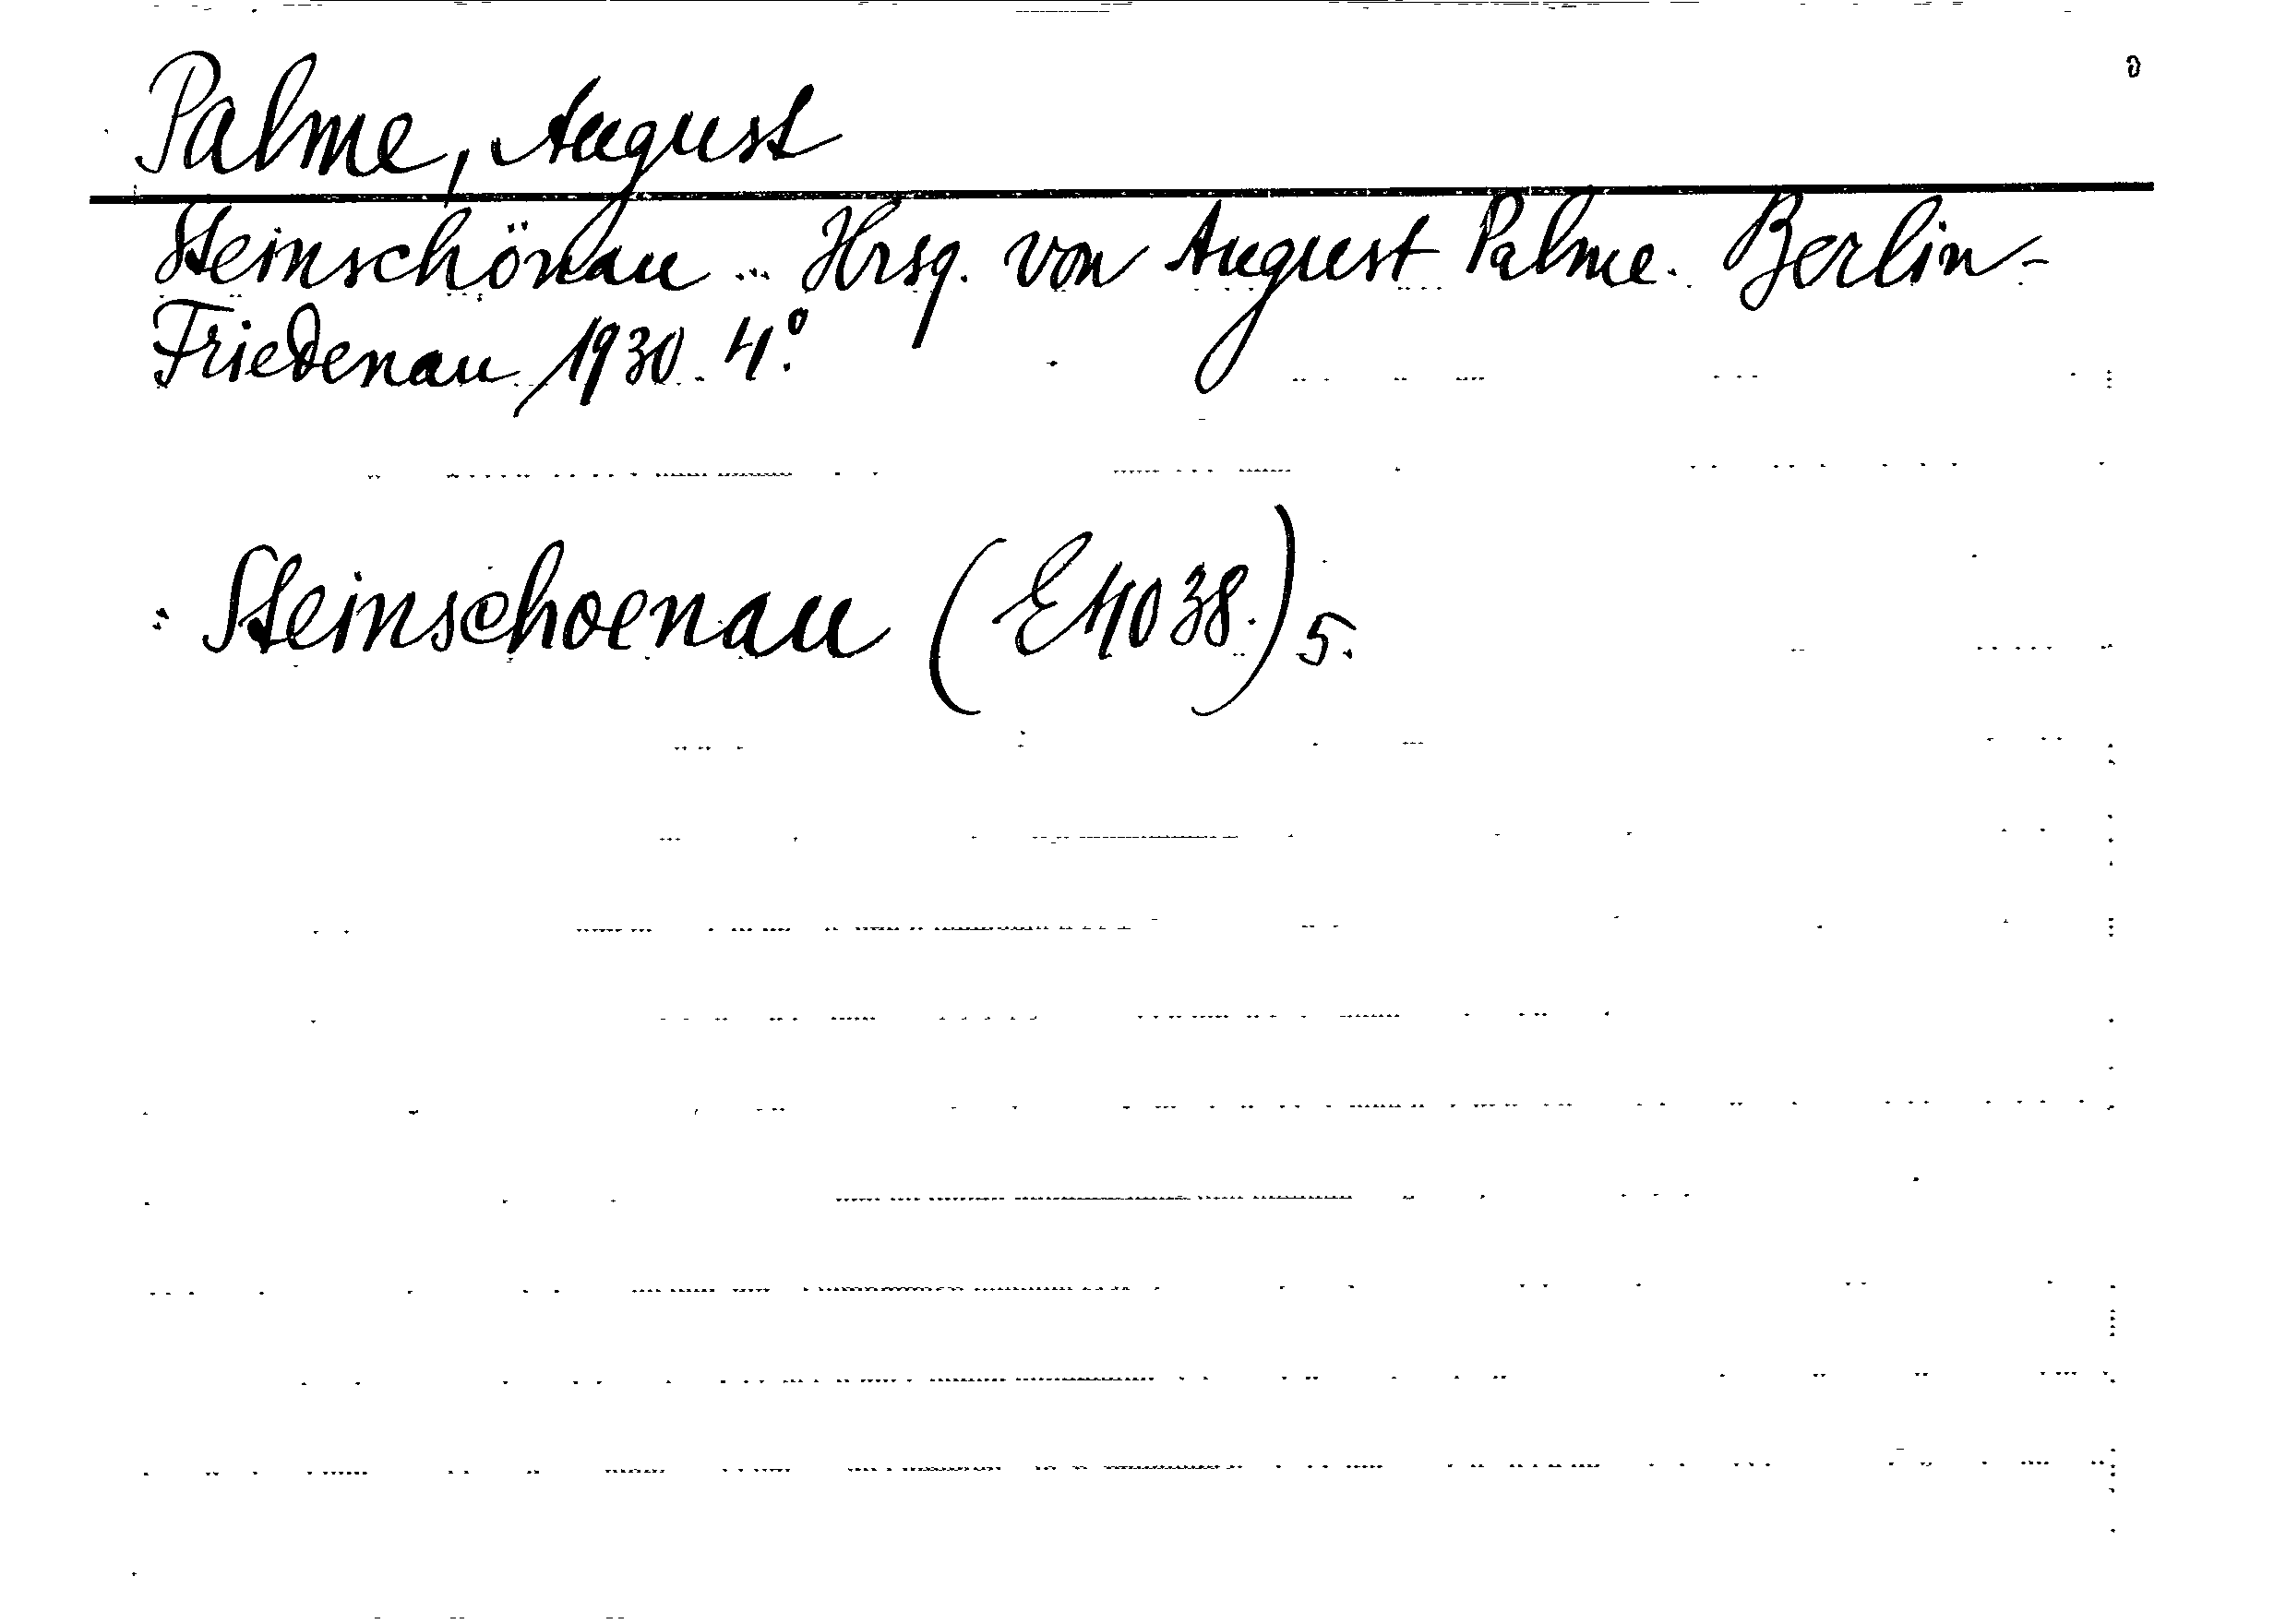 Palme, August
Steinschönau ... Hrsg. von August Palme. Berlin-
Friedenau, 1930. 4°.
Steinschoenau (E4038.) 5.